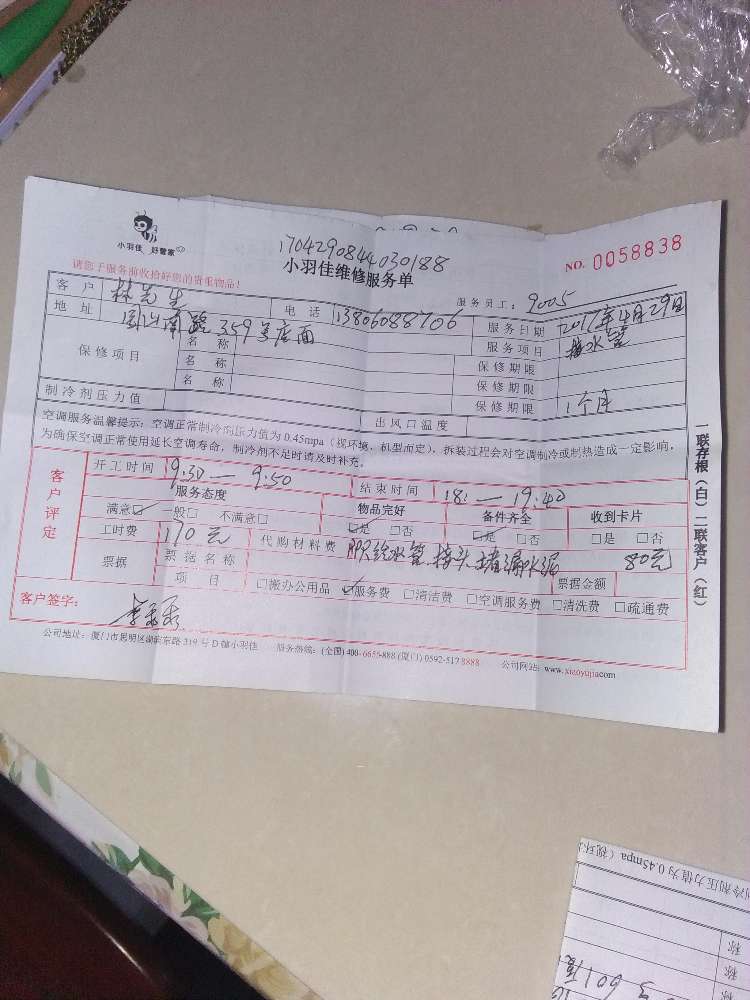 小羽佳 好管家
170429084403​0188
小羽佳维修服务单
NO. 0058838
请您于服务前收拾好您的贵重物品!
服务员工: 9005
客户 林先生 电话 13806088706 服务日期 2017年4月29日
地址 南路359号店面 服务项目 接水管
保修项目 名称 保修期限
名称 保修期限
名称 保修期限 1个月
制冷剂压力值 出风口温度
空调服务温馨提示: 空调正常制冷剂压力值为 0.45mpa(视环境、机型而定),拆装过程会对空调制冷或制热造成一定影响,
为确保空调正常使用延长空调寿命,制冷剂不足时请及时补充。
客户评定
开工时间 9:30—9:50 结束时间 18:—19:40
服务态度 物品完好 备件齐全 收到卡片
满意☑ 一般□ 不满意□ ☑是 □否 ☑是 □否 □是 □否
工时费 170元 代购材料费 给水管、接头、堵漏水泥 80元
票据 票据名称 票据金额
项目 □搬办公用品 ☑服务费 □清洁费 □空调服务费 □清洗费 □疏通费
客户签字:
公司地址: 厦门市思明区湖滨东路 319 号 D 幢小羽佳 服务热线: (全国) 400-6655-888 (厦门) 0592-517 8888 公司网站: www.xiaoyujia.com
一联存根(白)二联客户(红)
剂压力值为 0.45mpa(视环
称
称
称